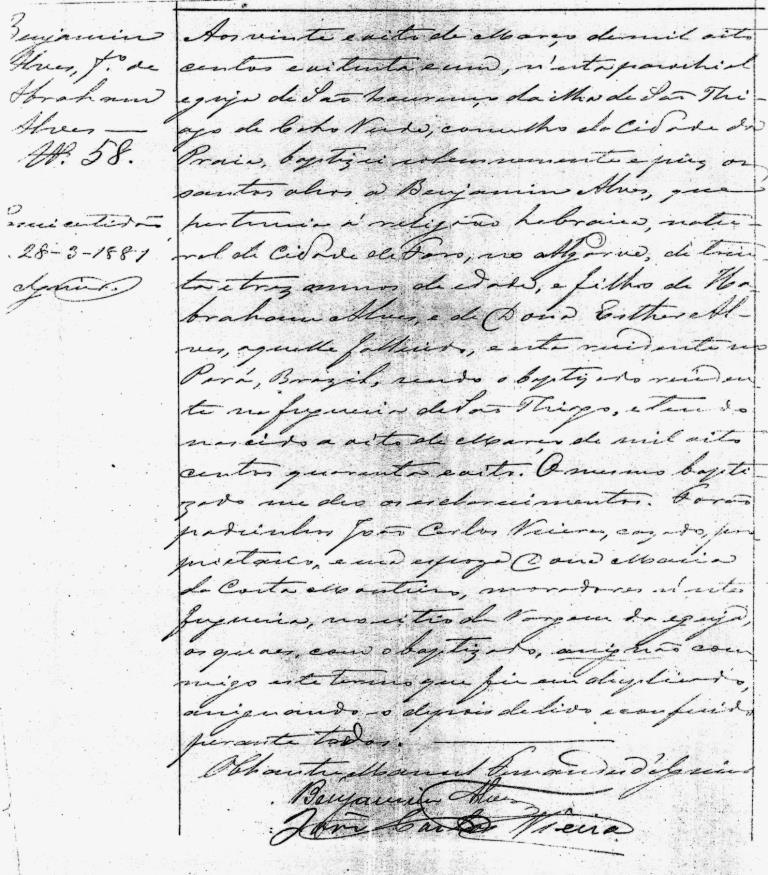 Benjamin
Alves, fº. de
Abraham
Alves —
Nº. 58.
28-3-1881
Aos vinte e oito de Março de mil oito
centos e oitenta e um, n'esta parochial
egreja de São Lourenço da ilha de São Thi-
ago de Cabo Verde, concelho da Cidade da
Praia, baptizei solemnemente e puz os
santos oleos a Benjamin Alves, que
pertencia á religião hebraica, natu-
ral de Cidade de Faro, no Algarve, de trin-
ta e trez annos de edade, e filho de Ha-
braham Alves, e de Dona Esther Al-
ves, aquelle fallecido, e esta residente no
Pará, Brazil, sendo o baptizado residen-
te na freguezia de São Thiago, e tendo
nascido a oito de Março de mil oito
centos quarenta e oito. O mesmo bapti-
zado me deo os esclarecimentos. Forão
padrinhos João Carlos Vieira, cazado, pro-
prietario, e sua espoza Dona Maria
da Costa Monteiro, moradores n'esta
freguezia, no sitio da Vargem da egreja,
os quaes, com o baptizado, assignão com-
migo este termo que fiz em duplicado,
assignando-o depois de lido e conferido
perante todos.
O Chantre Manuel Fernandes d'
Benjamin Alves
João Carlos Vieira